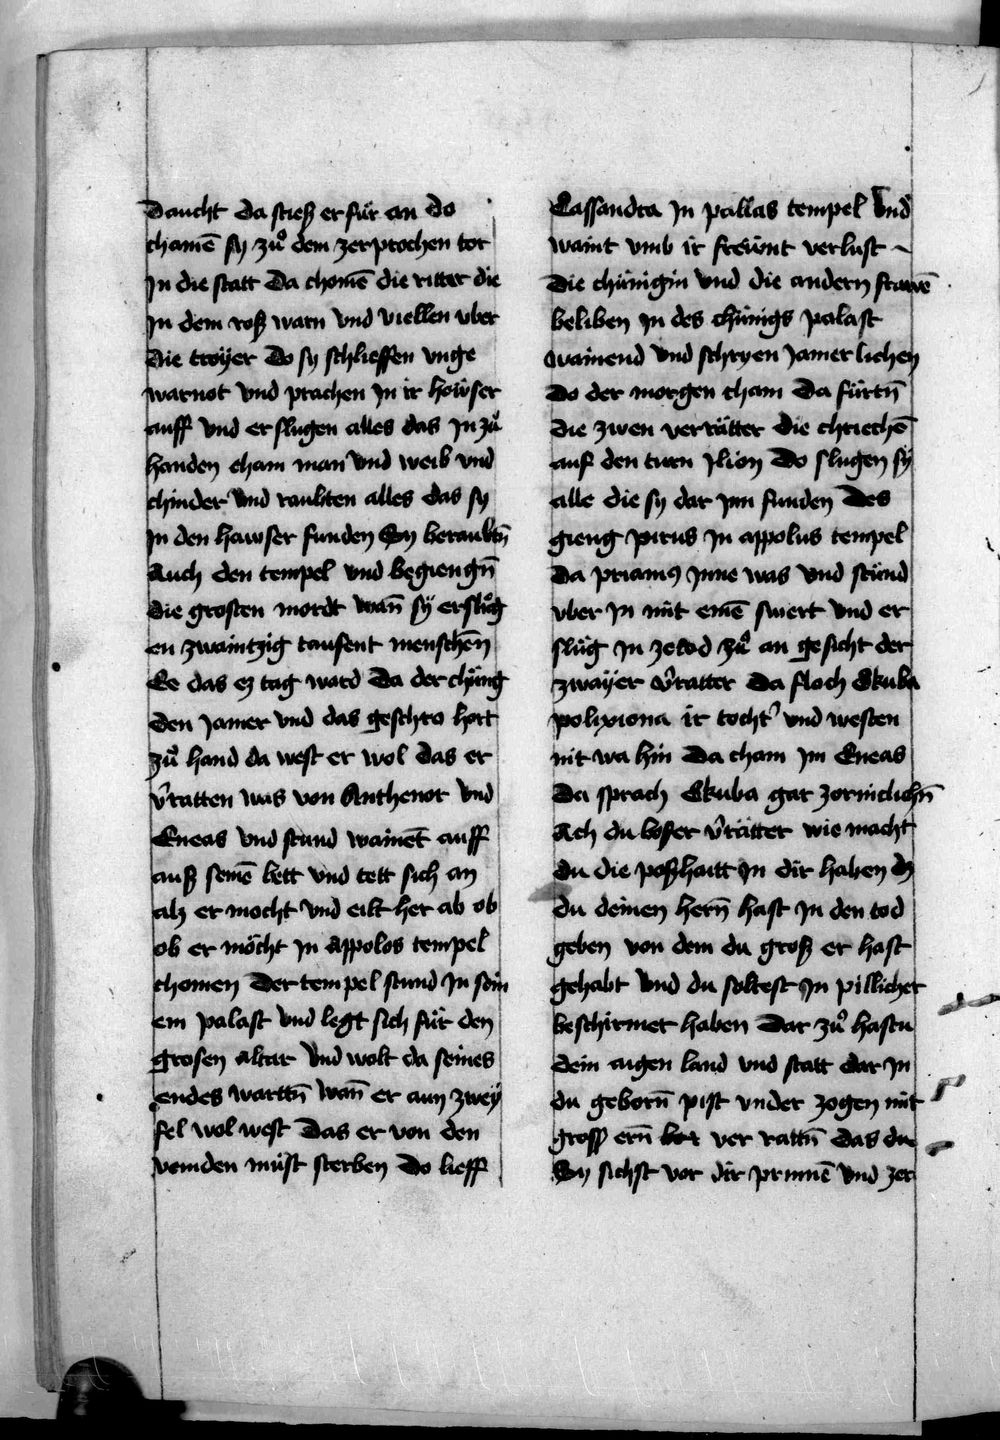 Daucht da stieß er für an do
chamē sy zů dem zerprochen tor
In die statt Da chomē die ritter die
In dem roß warn vnd viellen vber
die troyer Do sy schlieffen vnge
warnot vnd prachen In ir hewser
auff vnd erslugen alles das In zů
handen cham man vnd weib vnd
chinder vnd raubten alles das sy
In den hawser funden Sy beraubtn̄
Auch den tempel vnd begiengn̄
die grosten mordt wan̄ sy erslůg
en zwaintzig tausent menschen̄
Ee das ez tag ward Da der chüng
den Jamer vnd das geschro hort
zů hand da west er wol das er
v̓ratten was von Anthenor vnd
Eneas vnd stund wainēt auff
auß seinē bett vnd tett sich an
alz er mocht vnd eilt her ab ob
ob er möcht In Appolos tempel
chomen Der tempel stund In sein
em palast vnd legt sich für den
grosen altar vnd wolt da seines
endes warttn̄ wan̄ er aun zwey
fel wol west Das er von den
veinden müst sterben Do lieff
Cassandra In pallas tempel vnd
waint vmb ir freẅnt verlust
die chünigin vnd die andern frawē
beliben In des chünigs palast
wainend vnd schryen Jamerlichen
Do der morgen cham Da fürtn̄
die zwen verrätter die chriechē
auf den turn Ilion Do slugen sy
alle die sy dar Inn funden Des
gieng pirus In appolus tempel
da priamꝯ Inne was vnd stünd
vber In mit einē swert vnd er
slůg In ze tod zů an gesicht der
zwayer v̓ratter Da floch Ekuba
polixiona ir tocht̓ vnd westen
nit wa hin Da cham Im Eneas
Da sprach Ekuba gar zorniclichn̄
Ach du boser v̓rätter wie macht
du die poßhaitt In dir haben dz
du deinen hern̄ hast In den tod
geben von dem du groß er hast
gehabt vnd du soltest In pillicher
beschirmet haben Dar zů hastu
dein aigen land vnd statt dar In
du geborn̄ pist vnder zogen mit
gross ern̄ ver rattn̄ das du
Sy sichst vor dir prinnē vnd zer